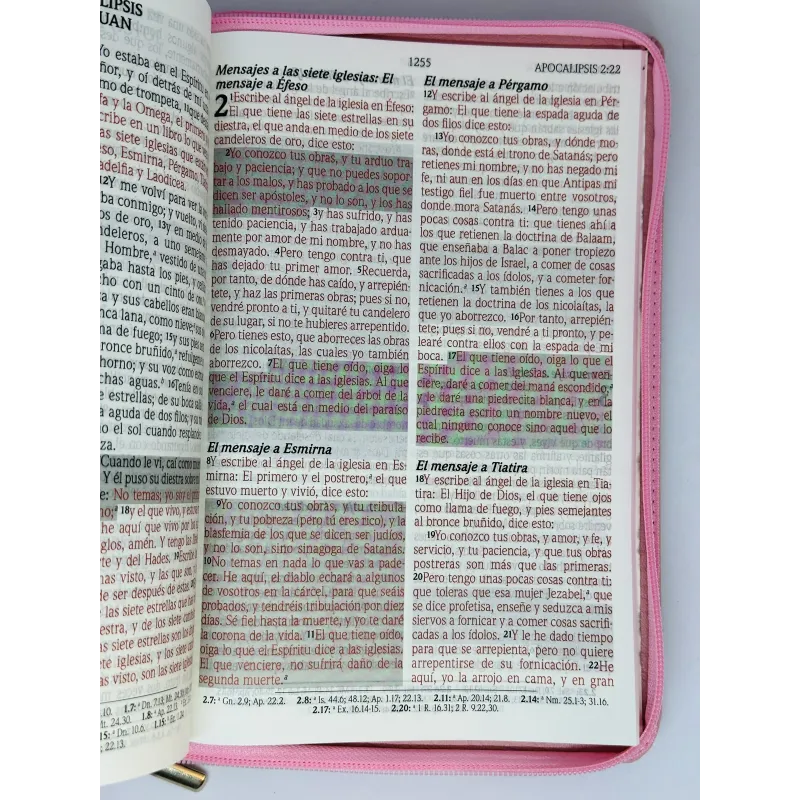 LIPSIS
UAN
Yo estaba en el Espíritu
ñor, y oí detrás de mí
mo de trompeta, que de
fa y la Omega, el primero
cribe en un libro lo que
as siete iglesias que están
eso, Esmirna, Pérgamo, Tiatira
adelfia y Laodicea.
12Y me volví para ver la
aba conmigo; y vuelto, vi
os de oro, 13y en medio
deleros, a uno semejante
Hombre,ª vestido de
gaba hasta los pies, y ceñido
cho con un cinto de oro
a y sus cabellos eran blancos
nca lana, como nieve; sus
ma de fuego; 15y sus pies
bronce bruñido,ª refulgente
horno; y su voz como estruendo
chas aguas.ª 16Tenía en
e estrellas; de su boca salía
a aguda de dos filos; y su
o el sol cuando resplandece
za.
Cuando le vi, caí como muerto
Y él puso su diestra sobre
e: No temas; yo soy el primero
mo;ª 18y el que vivo, y estuve
he aquí que vivo por los
glos, amén. Y tengo las
te y del Hades. 19Escribe
as visto, y las que son, y
de ser después de estas.
s siete estrellas que has
iestra, y de los siete candeleros
s siete estrellas son los
te iglesias, y los siete candeleros
as visto, son las siete iglesias
1255
APOCALIPSIS 2:22
Mensajes a las siete iglesias: El
mensaje a Éfeso
2 1Escribe al ángel de la iglesia en Éfeso:
El que tiene las siete estrellas en su
diestra, el que anda en medio de los siete
candeleros de oro, dice esto:
2Yo conozco tus obras, y tu arduo tra-
bajo y paciencia; y que no puedes sopor-
tar a los malos, y has probado a los que se
dicen ser apóstoles, y no lo son, y los has
hallado mentirosos; 3y has sufrido, y has
tenido paciencia, y has trabajado ardua-
mente por amor de mi nombre, y no has
desmayado. 4Pero tengo contra ti, que
has dejado tu primer amor. 5Recuerda,
por tanto, de dónde has caído, y arrepién-
tete, y haz las primeras obras; pues si no,
vendré pronto a ti, y quitaré tu candelero
de su lugar, si no te hubieres arrepentido.
6Pero tienes esto, que aborreces las obras
de los nicolaítas, las cuales yo también
aborrezco. 7El que tiene oído, oiga lo
que el Espíritu dice a las iglesias. Al que
venciere, le daré a comer del árbol de la
vida,ª el cual está en medio del paraíso
de Dios.
El mensaje a Esmirna
8Y escribe al ángel de la iglesia en Es-
mirna: El primero y el postrero,ª el que
estuvo muerto y vivió, dice esto:
9Yo conozco tus obras, y tu tribula-
ción, y tu pobreza (pero tú eres rico), y la
blasfemia de los que se dicen ser judíos,
y no lo son, sino sinagoga de Satanás.
10No temas en nada lo que vas a pade-
cer. He aquí, el diablo echará a algunos
de vosotros en la cárcel, para que seáis
probados, y tendréis tribulación por diez
días. Sé fiel hasta la muerte, y yo te daré
la corona de la vida. 11El que tiene oído,
oiga lo que el Espíritu dice a las iglesias.
El que venciere, no sufrirá daño de la
segunda muerte.ª
El mensaje a Pérgamo
12Y escribe al ángel de la iglesia en Pér-
gamo: El que tiene la espada aguda de
dos filos dice esto:
13Yo conozco tus obras, y dónde mo-
ras, donde está el trono de Satanás; pero
retienes mi nombre, y no has negado mi
fe, ni aun en los días en que Antipas mi
testigo fiel fue muerto entre vosotros,
donde mora Satanás. 14Pero tengo unas
pocas cosas contra ti: que tienes ahí a
los que retienen la doctrina de Balaam,
que enseñaba a Balac a poner tropiezo
ante los hijos de Israel, a comer de cosas
sacrificadas a los ídolos, y a cometer for-
nicación.ª 15Y también tienes a los que
retienen la doctrina de los nicolaítas, la
que yo aborrezco. 16Por tanto, arrepién-
tete; pues si no, vendré a ti pronto, y pe-
learé contra ellos con la espada de mi
boca. 17El que tiene oído, oiga lo que el
Espíritu dice a las iglesias. Al que ven-
ciere, daré a comer del maná escondido,ª
y le daré una piedrecita blanca, y en la
piedrecita escrito un nombre nuevo, el
cual ninguno conoce sino aquel que lo
recibe.
El mensaje a Tiatira
18Y escribe al ángel de la iglesia en Tia-
tira: El Hijo de Dios, el que tiene ojos
como llama de fuego, y pies semejantes
al bronce bruñido, dice esto:
19Yo conozco tus obras, y amor, y fe, y
servicio, y tu paciencia, y que tus obras
postreras son más que las primeras.
20Pero tengo unas pocas cosas contra ti:
que toleras que esa mujer Jezabel,ª que
se dice profetisa, enseñe y seduzca a mis
siervos a fornicar y a comer cosas sacrifi-
cadas a los ídolos. 21Y le he dado tiempo
para que se arrepienta, pero no quiere
arrepentirse de su fornicación. 22He
aquí, yo la arrojo en cama, y en gran
2.7: ª Gn. 2.9; Ap. 22.2. 2.8: ª Is. 44.6; 48.12; Ap. 1.17; 22.13. 2.11: ª Ap. 20.14; 21.8. 2.14: ª Nm. 25.1-3; 31.16.
2.17: ª Ex. 16.14-15. 2.20: ª 1 R. 16.31; 2 R. 9.22,30.